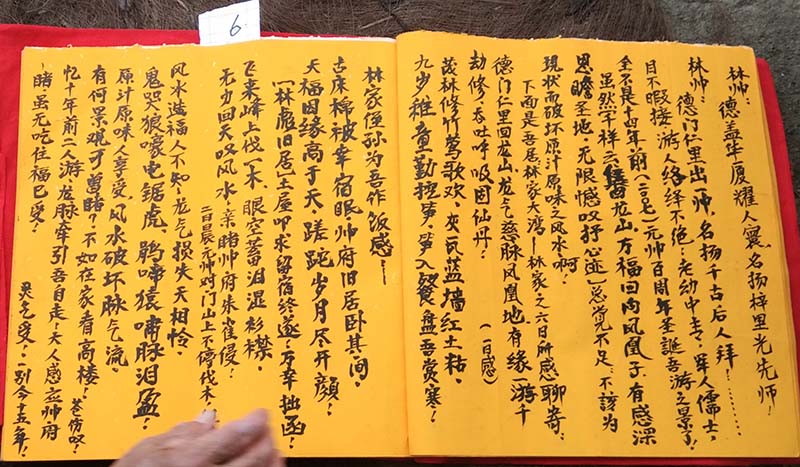 6
林帅：
德盖华厦耀人寰，名扬梓里光先师！
林帅：
德门仁里出一帅，名扬千古后人拜……
目不暇接，游人络绎不绝：老幼中专，军人儒士，
至不是十四年前（二〇〇七）元帅百周年圣誕吾游之景了！
虽然字样云集龙山，万福回向凤凰子，有感深
思瞻圣地，无限憾叹抒心迹；总觉不足：不该为
现状而破坏原汁原味之风水啊！
下面是吾居林家大湾—林家之六日所感聊寄：
德门仁里回龙山，龙气慈脉凤凰地，有缘一游千
劫修，吞吐呼吸固仙丹！（一日感）
茂林修竹莺歌欢，灰瓦蓝墙红土粘，
九岁稚童勤挖笋，笋入餐盘吾赏寒！
林家侄孙为吾作饭感！—
古床棉被幸宿眠，帅府旧居卧其间。
天福因缘高于天，蹉跎岁月尽开颜！
（林彪旧居）土屋叩，求留宿终遂，万幸拙函！
飞来峰上伐一木，眼空蓄泪湿衫襟。
无力回天叹风水，亲睹帅府朱雀侵！
二日晨元帅对门山上不停伐木
风水造福人不知，龙气损失天相怜。
鬼哭狼嚎电锯虎，鹃啼猿啸脉泪盈！
原汁原味人享受，风水破坏脉气流。
有何景观可曾睹？不如在家看高楼！
忆十年前二人游，龙脉牵引吾自走；天人感应帅府
睹虽无吃住福已受！
一别今十五年！